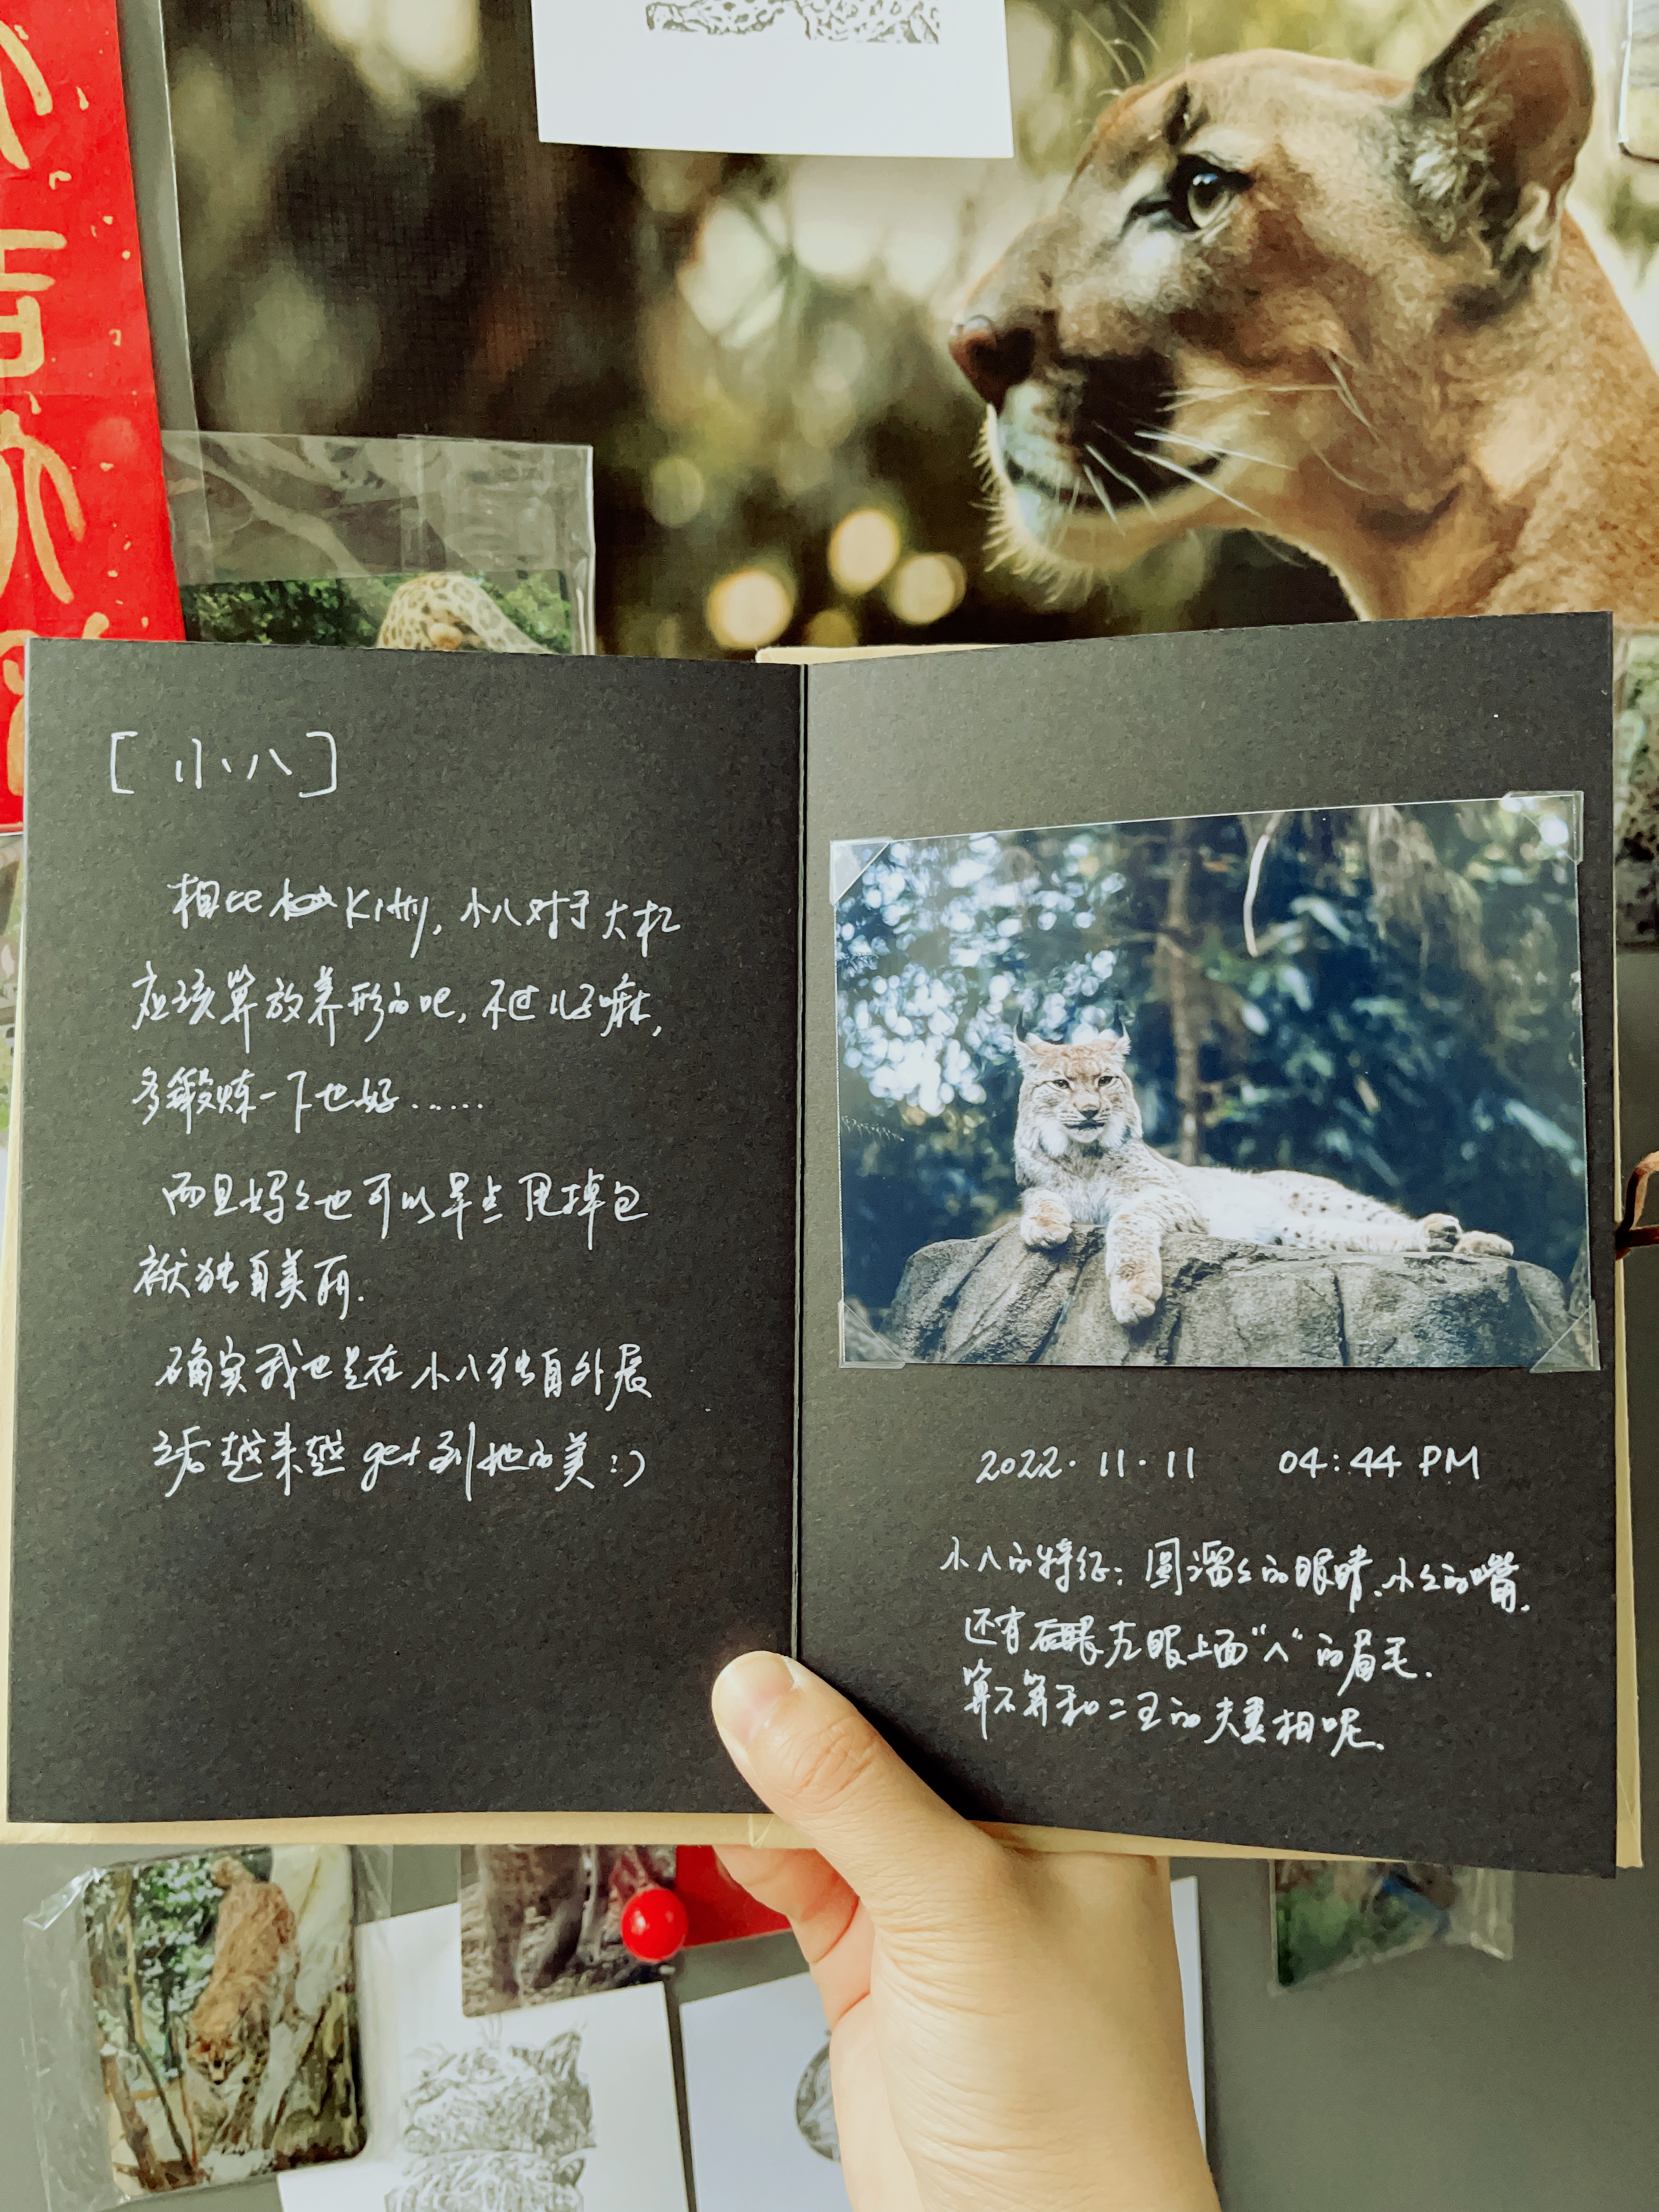 [小八]
相比 Kitty, 小八对于大机
应该算放养形的吧, 不过儿子嘛,
多锻炼一下也好......
而且妈々也可以早点甩掉包
袱独自美丽.
确实我也是在小八独自外展
之后越来越get到她的美:)
2022.11.11 04:44 PM
小八的特征: 圆溜々的眼睛、小々的嘴,
还有左眼上面“八”的眉毛.
算不算和二王的夫妻相呢.